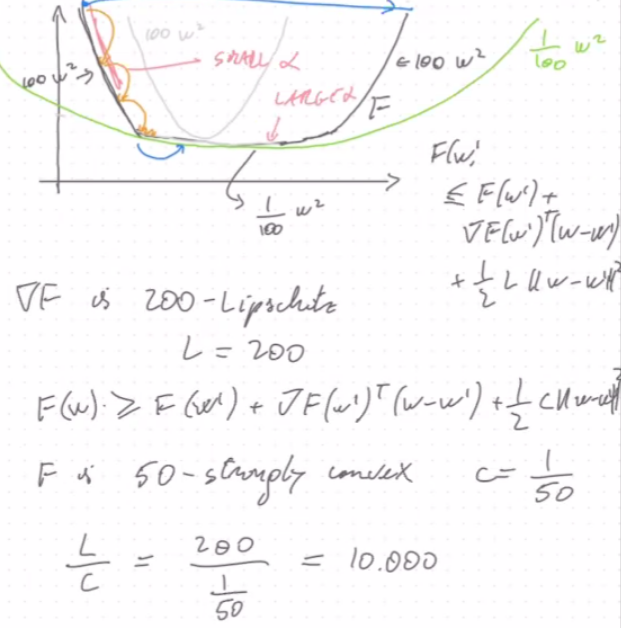 100 w²
100 w²
SMALL α
LARGE α
F
≤ 100 w²
1/100 w²
1/100 w²
F(w)
≤ F(w') +
∇F(w')ᵀ(w-w')
+ 1/2 L ||w-w'||²
∇F is 200-Lipschitz
L = 200
F(w) ≥ F(w') + ∇F(w')ᵀ(w-w') + 1/2 c||w-w'||²
F is 50-strongly convex c = 1/50
L/C = 200/(1/50) = 10.000